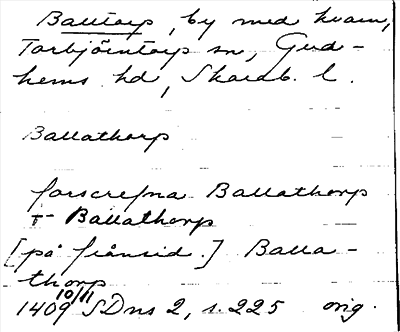 Balltorp, by med kvarn,
Torbjörntorp sn, Gud-
hems hd, Skarab. l.
Ballathorp
forscrefna Ballathorp
+ Ballathorp
[på frånsid.] Balla-
thorp
1409 10/11 SDns 2, s. 225 orig.